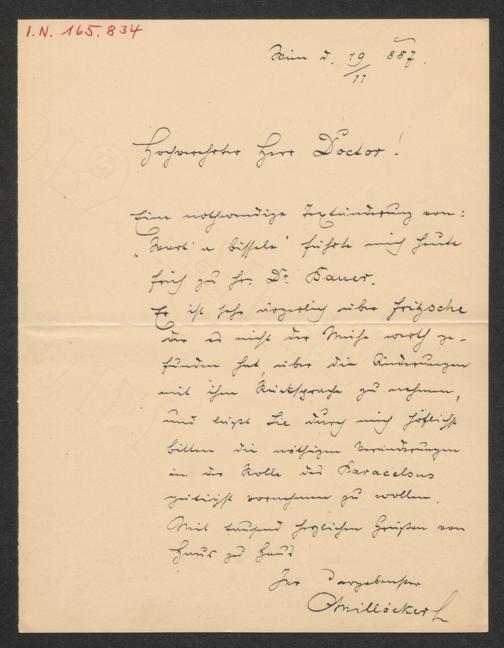 I.N. 165.834
Wien d. 19/11 887.
Hochverehrter Herr Doctor!
Eine nothwendige Textänderung von:
"Wart' a bissele" führte mich heute
früh zu Hr. Dr. Bauer.
Er ist sehr ärgerlich über Fritzsche
der es nicht der Mühe werth ge-
funden hat, über die Änderungen
mit ihm Rücksprache zu nehmen,
und läßt Sie durch mich höflichst
bitten die nöthigen Veränderungen
in der Rolle des Paracelsus
gütigst vornehmen zu wollen.
Mit tausend herzlichen Grüßen von
Haus zu Haus
Ihr ergebenster
CMillöcker